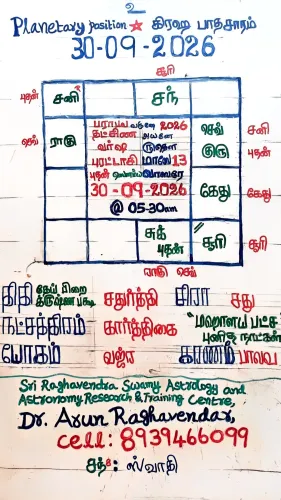 2
Planetary position ★ கிரஹ பாதசாரம்
30-09-2026
சூரி
புதன் சனி சந்
செவ் ராகு செவ் குரு சனி புதன்
பராபவ வருஷம் 2026
தட்சிண அயனம்
வர்ஷ ருதௌ
புரட்டாசி மாஸே 13
புதன் வாஸரே
30-09-2026
@ 05-30am
கேது கேது
சுக் புதன் சூரி சூரி
ராகு செவ்
திதி தேய் பிறை கிருஷ்ண பக்ஷ சதுர்த்தி சிரா சது
நட்சத்திரம் கார்த்திகை "மஹாளய பட்ச புனித நாட்கள்"
யோகம் வஜ்ரா கரணம் பாலவ
Sri Raghavendra Swamy Astrology and
Astronomy Research & Training Centre,
Dr. Arun Raghavendar,
cell: 8939466099
சுக்: ஸ்வாதி